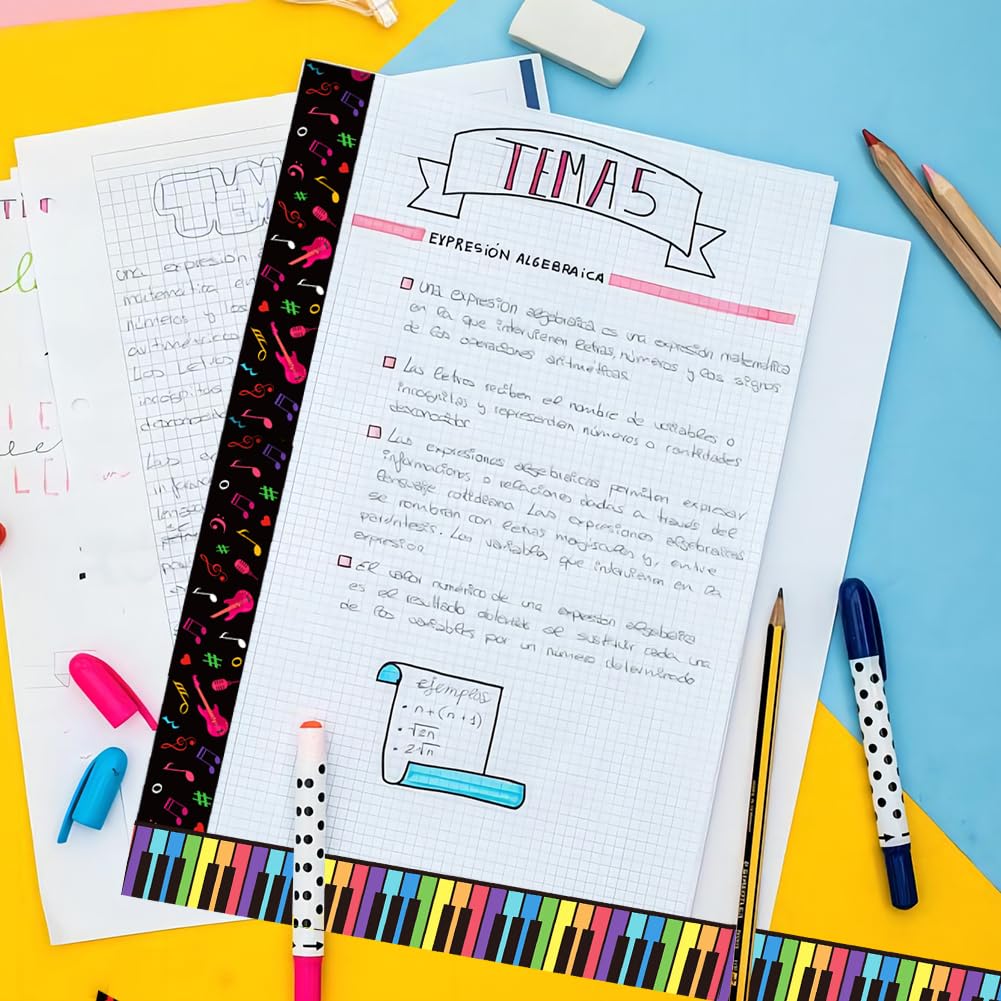 TEMA 5
EXPRESIÓN ALGEBRAICA
Una expresión algebraica es una expresión matemática
en la que intervienen letras, números y los signos
de las operaciones aritméticas.
Las letras reciben el nombre de variables o
incognitas y representan números o cantidades
desconocidas
Las expresiones algebraicas permiten expresar
informaciones o relaciones dadas a través del
lenguaje cotidiano. Las expresiones algebraicas
se nombran con letras mayúsculas y, entre
paréntesis. Las variables que intervienen en la
expresión
El valor numérico de una expresión algebraica
es el resultado obtenido al sustituir cada una
de las variables por un número determinado
ejemplos
• n+(n+1)
• √2n
• 2√n
TEM
una expresión
matemática en
números y los
aritméticas
Las letras